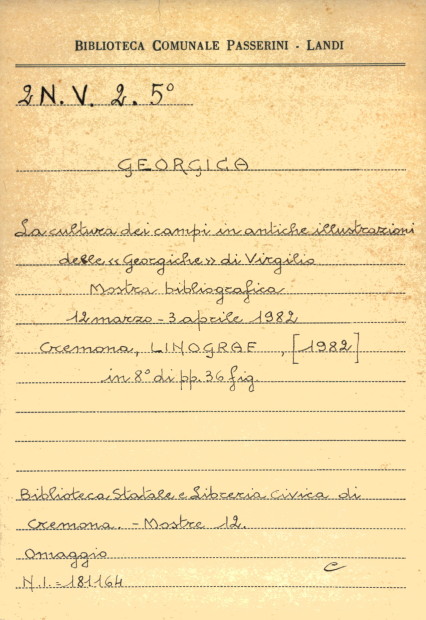 BIBLIOTECA COMUNALE PASSERINI - LANDI
2 N. V. 2. 5°
GEORGICA
La cultura dei campi in antiche illustrazioni
delle «Georgiche» di Virgilio
Mostra bibliografica
12 marzo - 3 aprile 1982
Cremona, LINOGRAF, [1982]
in 8° di pp. 36 fig.
Biblioteca Statale e Libreria Civica di
Cremona. - Mostre 12.
Omaggio
C
N.I. = 181164